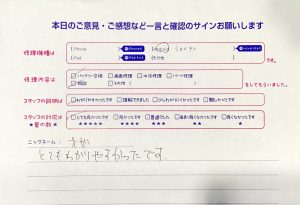 本日のご意見・ご感想など一言と確認のサインお願いします
修理機種は
iPhone
iPad
その他
です。
修理内容は
バッテリー交換 画面修理 水没修理 パーツ修理
その他
をしてもらいました。
スタッフの説明は
わかりやすかったです 理解できました 少しわかりにくかったです 難しかったです
スタッフの対応は
とても良かったです 良かったです 普通でした あまり良くなかったです 良くなかったです
★星の数★
★★★★★ ★★★★ ★★★ ★★ ★
ニックネーム：
とてもわかりやすかったです。